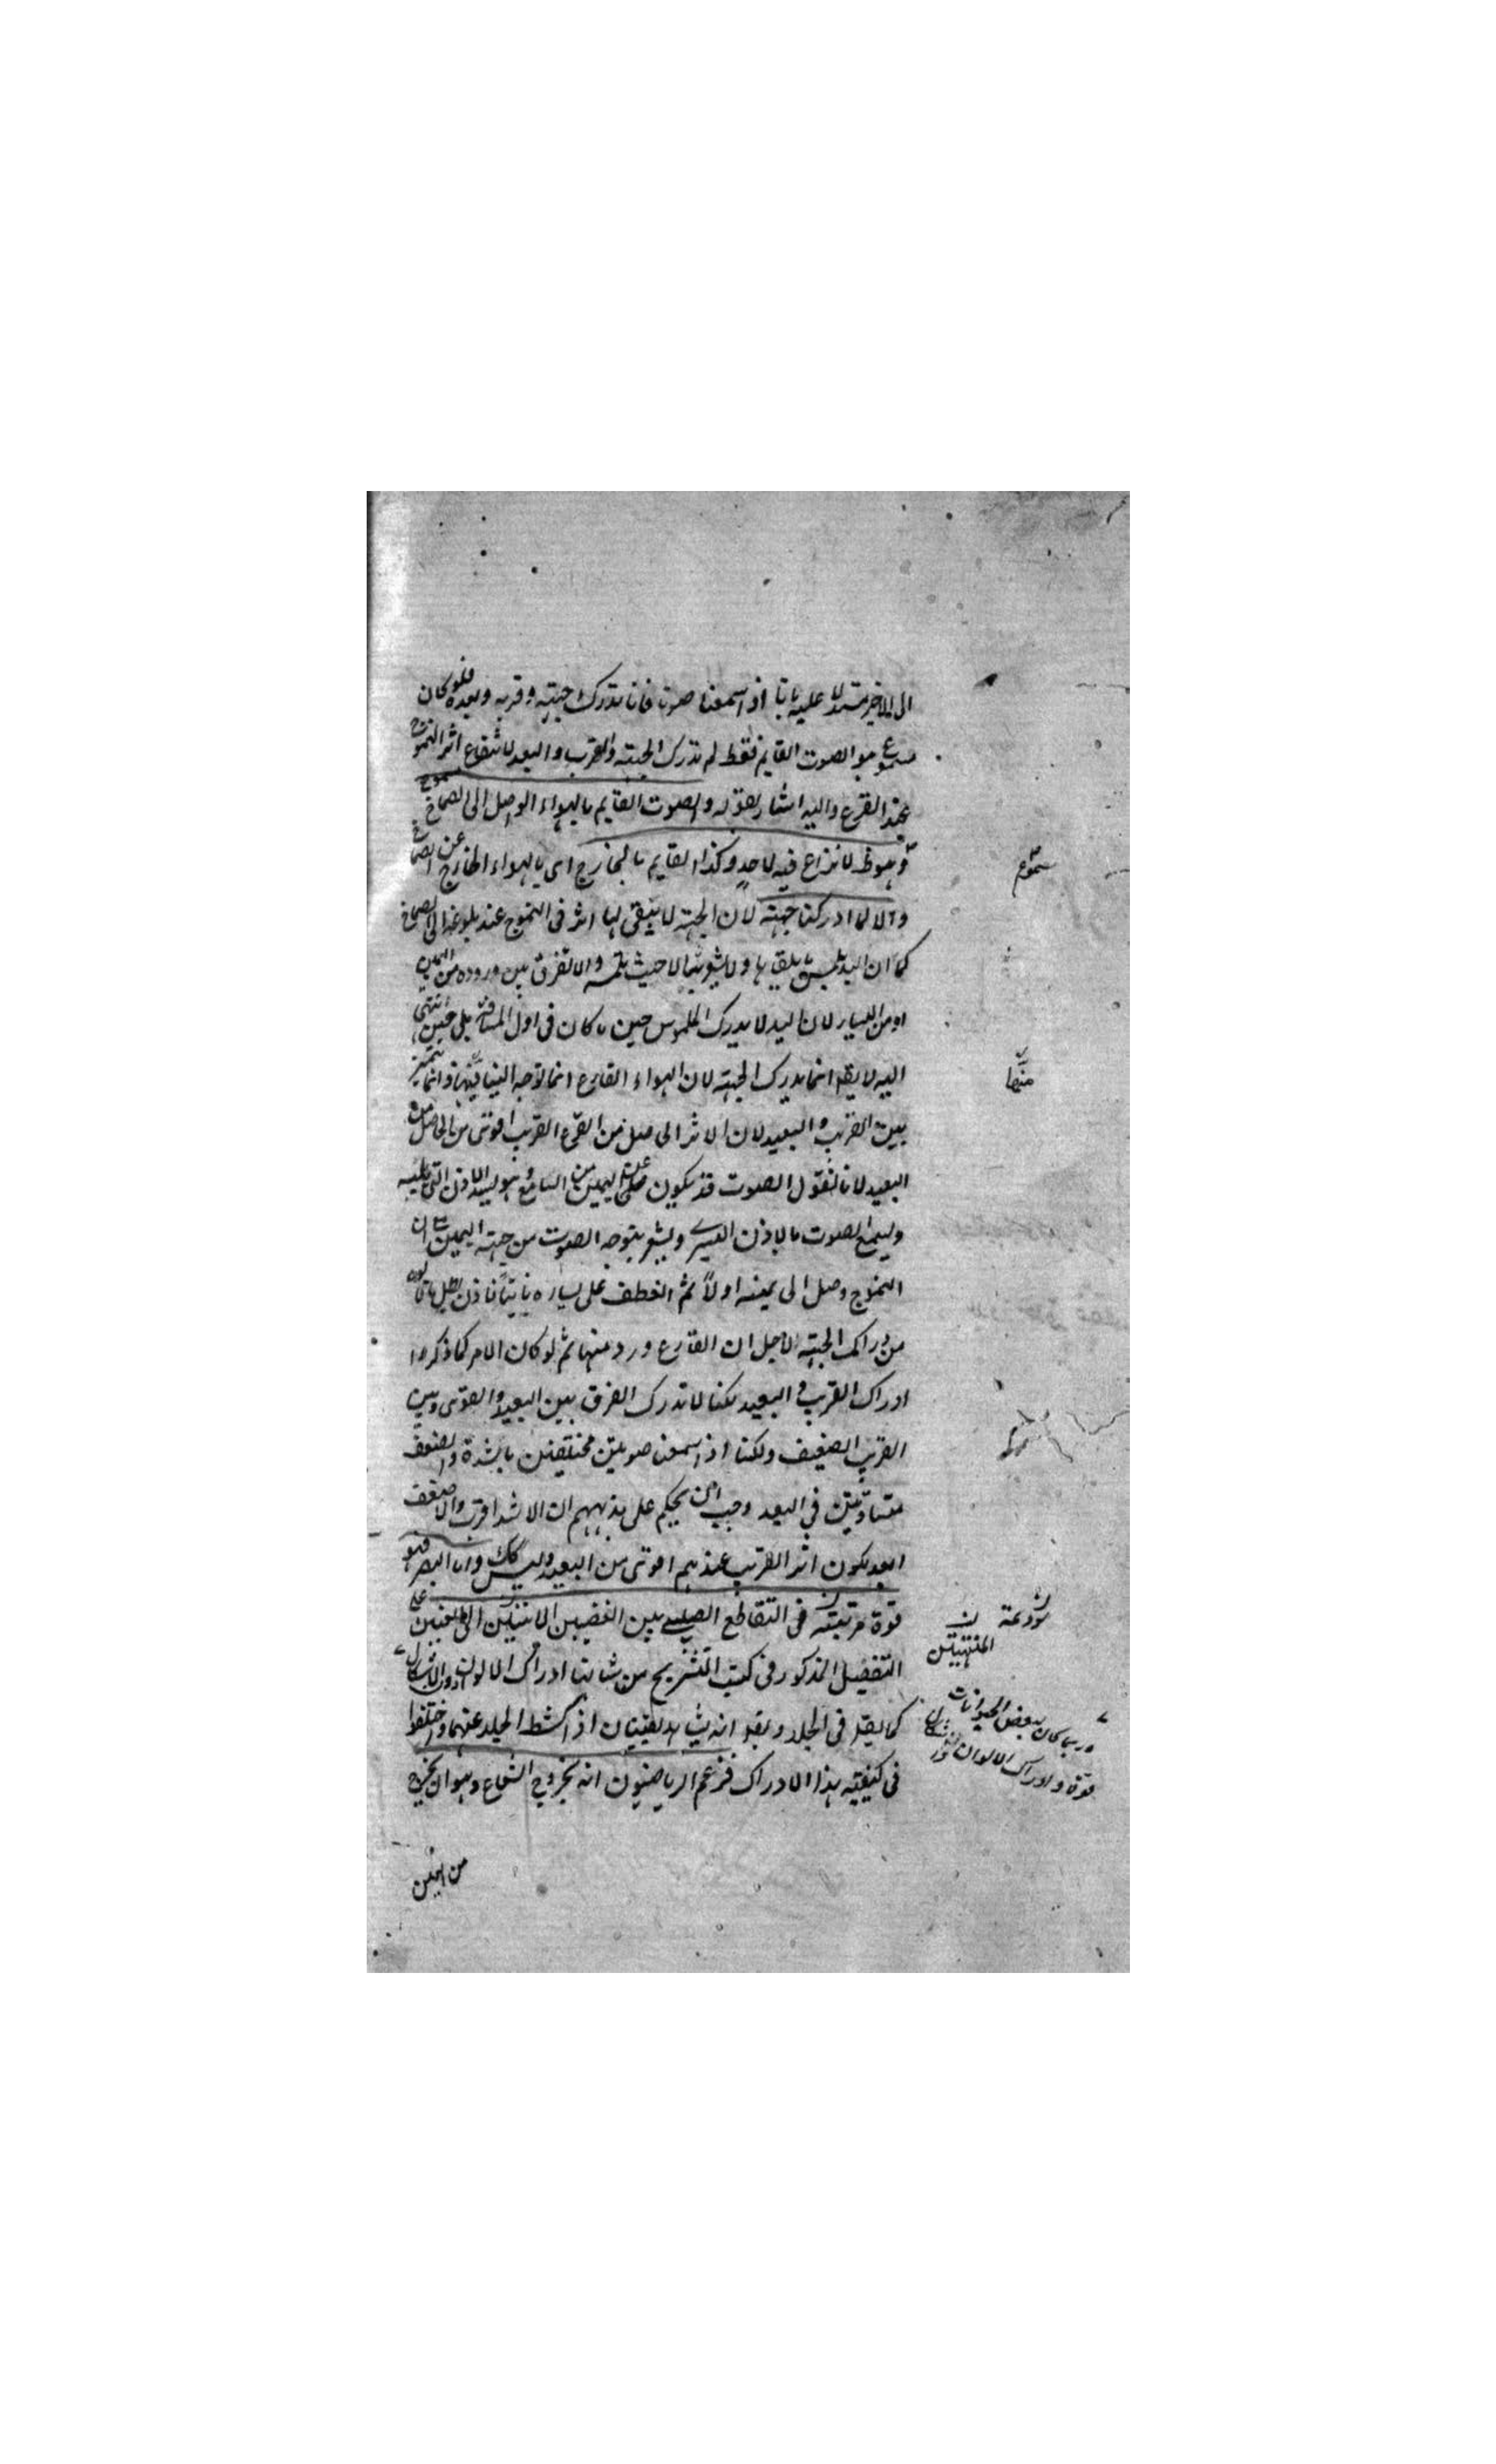 الى الاخر مستدلا عليه بانا اذا سمعنا صوتا فانا ندرك جهته وقربه وبعده فلو كان
مسموع هو الصوت القايم فقط لم ندرك الجهة والقرب والبعد لانتفاع اثر التموج
عند القرع واليه اشار بقوله والصوت القايم بالهواء الواصل الى الصماخ مسموع
وهو ظ لا نزاع فيه لاحد وكذا القايم بالخارج اى بالهواء الخارج عن الصماخ
والا لما ادركنا جهته لان الجهة لا يبقى لها اثر فى التموج عند بلوغه الى الصماخ
كما ان اليد يلمس ما يلقاها ولا يشعر بها الا حيث يلمسه ولا تفرق بين وروده من اليمين
او من اليسار لان اليد لا يدرك الملموس حين ما كان فى اول المسافة بل حين انتهى
اليه لا يقد انما يدرك الجهة لان الهواء القارع انما توجه الينا منها وانما يتميز
بين القريب والبعيد لان الاثر الحاصل من القرع القريب اقوى من الحاصل من
البعيد لانا نقول الصوت قد يكون على اليمين من السامع وهو ليسد الاذن التى يليه
ويسمع الصوت بالاذن اليسرى ويشعر بتوجه الصوت من جهة اليمين مع ان
التموج وصل الى يمينه اولا ثم انعطف على يساره ثانيا فاذن بطل ما قالوه
من ادراك الجهة لاجل ان القارع ورد منها ثم لو كان الامر كما ذكروا
ادراك القرب والبعيد لكنا لا ندرك الفرق بين البعيد القوى وبين
القريب الضعيف ولكنا اذا سمعنا صوتين مختلفين بالشدة والضعف
متساويتين فى البعد وجب ان يحكم على مذهبهم ان الاشد اقرب والاضعف
ابعد لكون اثر القريب عندهم اقوى من البعيد وليس كك واما البصر فهو
قوة مرتبة فى التقاطع الصليبى بين العصبين الاتيين الى العينين على
التفصيل المذكور فى كتب التشريح من شانها ادراك الالوان والاشكال
كما يقد فى الجلد وبقد انه يشاهد بقيتان اذا كشط الجلد عنهما واختلفوا
فى كيفية هذا الادراك فزعم الرياضيون انه بخروج الشعاع وهو ان يخرج
من العين
مسموع
منها
مودعة
المنتهيتين
وربما كان لبعض الحيوانات
قوة وادراك الالوان